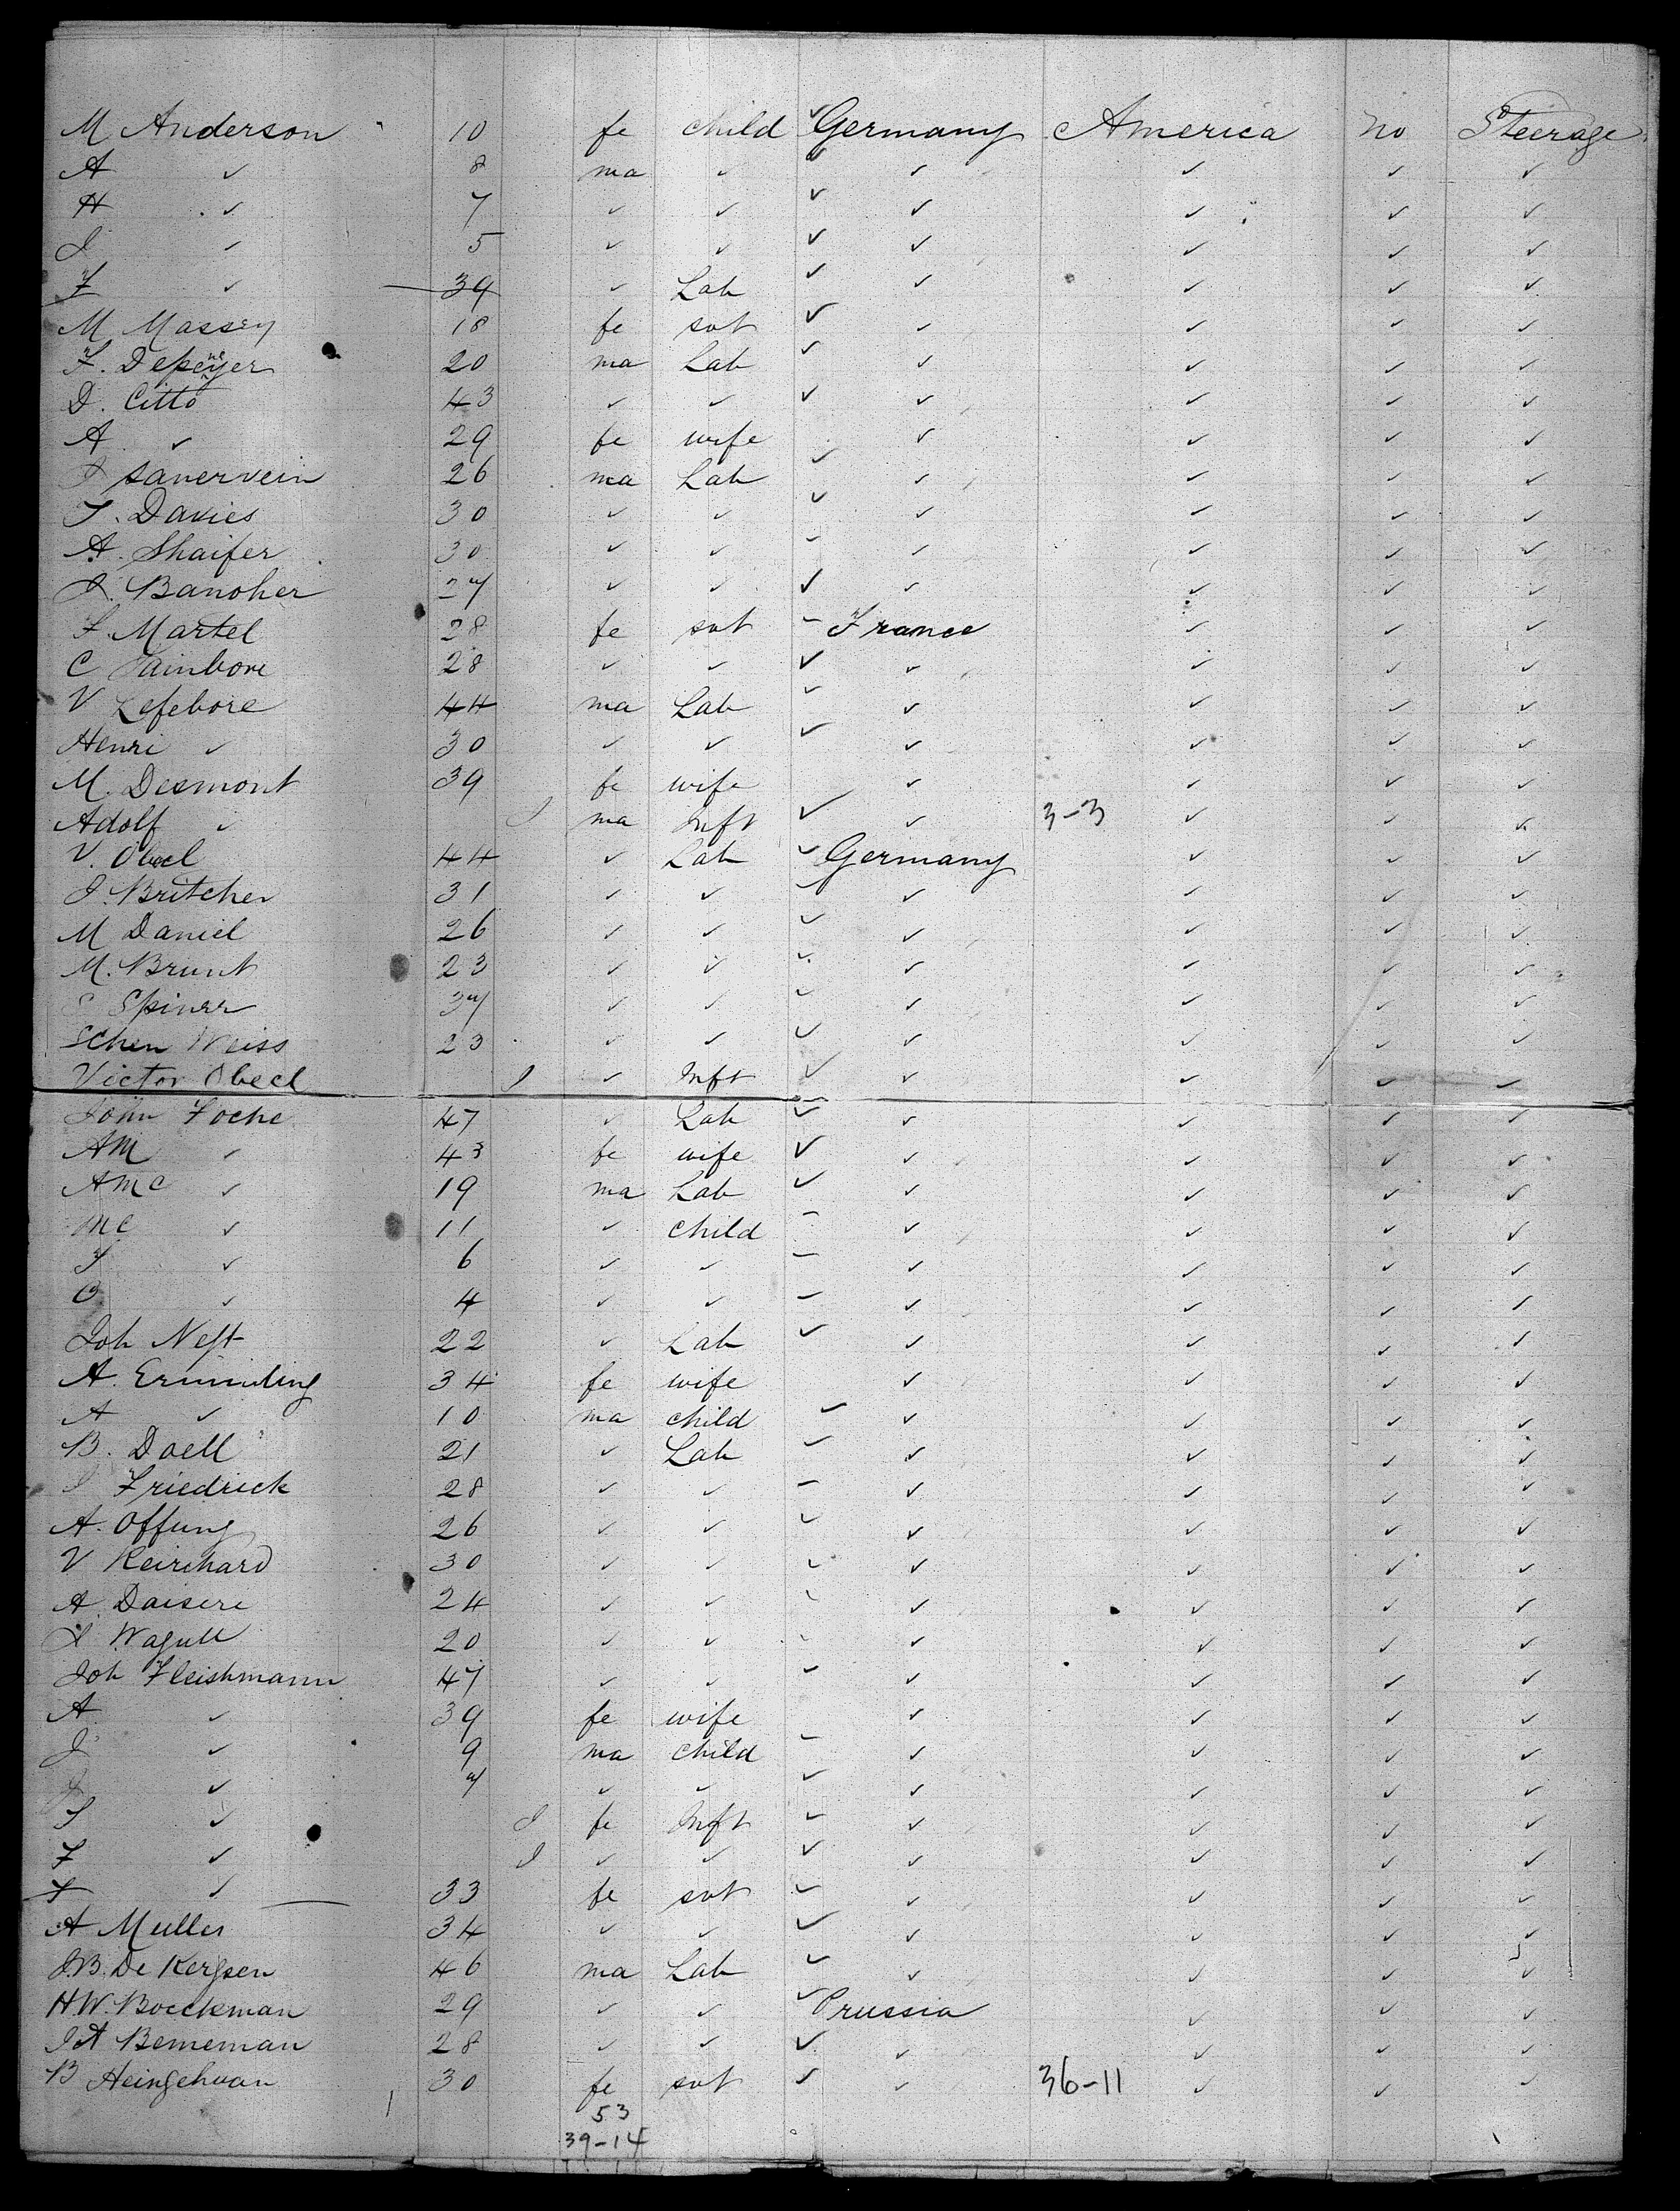 M Anderson 10 fe child ✓ Germany America no Steerage
A ✓ 8 ma ✓ ✓ ✓ ✓ ✓ ✓
H ✓ 7 ✓ ✓ ✓ ✓ ✓ ✓ ✓
J ✓ 5 ✓ ✓ ✓ ✓ ✓ ✓ ✓
F ✓ 39 ✓ Lab ✓ ✓ ✓ ✓ ✓
M Massey 18 fe svt ✓ ✓ ✓ ✓ ✓
F. 20 ma Lab ✓ ✓ ✓ ✓ ✓
D. Citto 43 ✓ ✓ ✓ ✓ ✓ ✓ ✓
A ✓ 29 fe wife ✓ ✓ ✓ ✓
Sanervein 26 ma Lab ✓ ✓ ✓ ✓ ✓
T. Davies 30 ✓ ✓ ✓ ✓ ✓ ✓ ✓
A. Shaifer 30 ✓ ✓ ✓ ✓ ✓ ✓ ✓
J. Banoher 27 ✓ ✓ ✓ ✓ ✓ ✓ ✓
F. Martel 28 fe svt – France ✓ ✓ ✓
C 28 ✓ ✓ ✓ ✓ ✓ ✓ ✓
V Lefebore 44 ma Lab ✓ ✓ ✓ ✓ ✓
Henri ✓ 30 ✓ ✓ ✓ ✓ ✓ ✓ ✓
M. Desmont 39 fe wife ✓ ✓ ✓ ✓
Adolf ✓ I ma Inft ✓ ✓ 3-3 ✓ ✓ ✓
V. Obecl 44 ✓ Lab ✓ Germany ✓ ✓ ✓
J. Britcher 31 ✓ ✓ ✓ ✓ ✓ ✓ ✓
M Daniel 26 ✓ ✓ ✓ ✓ ✓ ✓ ✓
M. Brunt 23 ✓ ✓ ✓ ✓ ✓ ✓ ✓
Spinrr 37 ✓ ✓ ✓ ✓ ✓ ✓ ✓
Schen Weiss 23 ✓ ✓ ✓ ✓ ✓ ✓ ✓
Victor Obecl I ✓ Inft ✓ ✓ ✓ ✓ ✓
John Foche 47 ✓ Lab ✓ ✓ ✓ ✓ ✓
AM ✓ 43 fe wife ✓ ✓ ✓ ✓ ✓
AMC ✓ 19 ma Lab ✓ ✓ ✓ ✓ ✓
MC ✓ 11 ✓ child – ✓ ✓ ✓ ✓
S ✓ 6 ✓ ✓ – ✓ ✓ ✓ ✓
O ✓ 4 ✓ ✓ – ✓ ✓ ✓ ✓
Joh Neft 22 ✓ Lab ✓ ✓ ✓ ✓ ✓
A. 34 fe wife ✓ ✓ ✓ ✓
A ✓ 10 ma child ✓ ✓ ✓ ✓ ✓
B. Doell 21 ✓ Lab ✓ ✓ ✓ ✓ ✓
J Friedrick 28 ✓ ✓ – ✓ ✓ ✓ ✓
A. Offung 26 ✓ ✓ ✓ ✓ ✓ ✓ ✓
V Reirchard 30 ✓ ✓ ✓ ✓ ✓ ✓ ✓
A. Daisere 24 ✓ ✓ ✓ ✓ ✓ ✓ ✓
Wagull 20 ✓ ✓ ✓ ✓ ✓ ✓ ✓
Joh Fleishmann 47 ✓ ✓ ✓ ✓ ✓ ✓ ✓
A ✓ 39 fe wife ✓ ✓ ✓ ✓
J ✓ 9 ma child – ✓ ✓ ✓ ✓
✓ 7 ✓ ✓ ✓ ✓ ✓ ✓ ✓
S ✓ I fe Inft ✓ ✓ ✓ ✓ ✓
F ✓ I ✓ ✓ ✓ ✓ ✓ ✓ ✓
F ✓ 33 fe svt ✓ ✓ ✓ ✓ ✓
A Muller 34 ✓ ✓ ✓ ✓ ✓ ✓ ✓
J.B. De Kergsen 46 ma Lab ✓ ✓ ✓ ✓ ✓
H.W. Boeckman 29 ✓ ✓ ✓ Prussia ✓ ✓ ✓
JA Bememan 28 ✓ ✓ ✓ ✓ ✓ ✓ ✓
B 30 fe svt ✓ ✓ 36-11 ✓ ✓ ✓
53
39-14